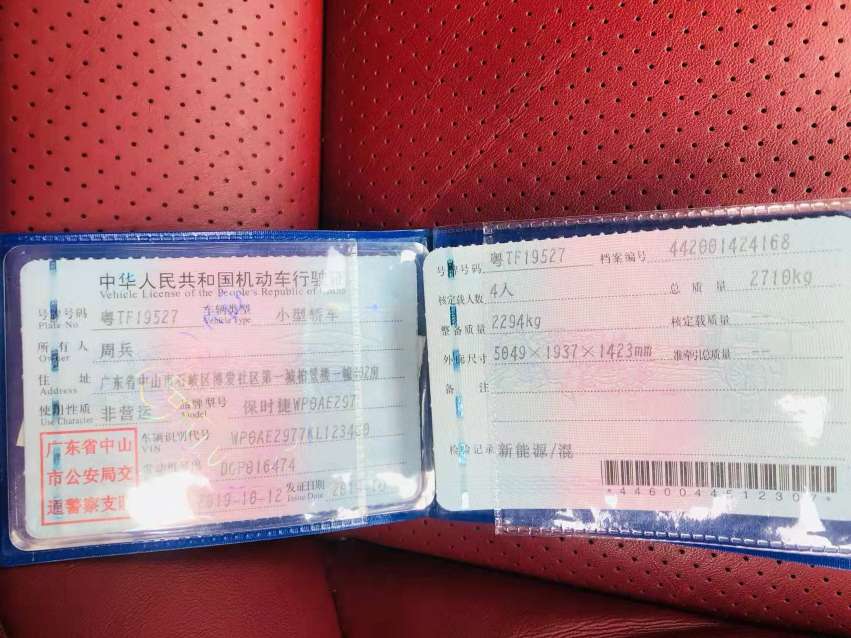 中华人民共和国机动车行驶证
Vehicle License of the People's Republic of China
号牌号码 粤TF19527 车辆类型 小型轿车
Plate No Vehicle Type
所有人 周兵
Owner
住址 广东省中山市石岐区博爱社区第一城
Address
使用性质 非营运 品牌型号 保时捷WP0AE297
Use Character Model
广东省中山
市公安局交
通警察支队
车辆识别代号 WP0AE2977KL123400
VIN
发动机号码 DGP016474
2019-10-12 发证日期
Issue Date
号牌号码 粤TF19527 档案编号 442001424168
核定载人数 4人 总质量 2710kg
整备质量 2294kg 核定载质量 --
外廓尺寸 5049×1937×1423mm 准牵引总质量 --
备注
检验记录 新能源/混
*4460044512307*